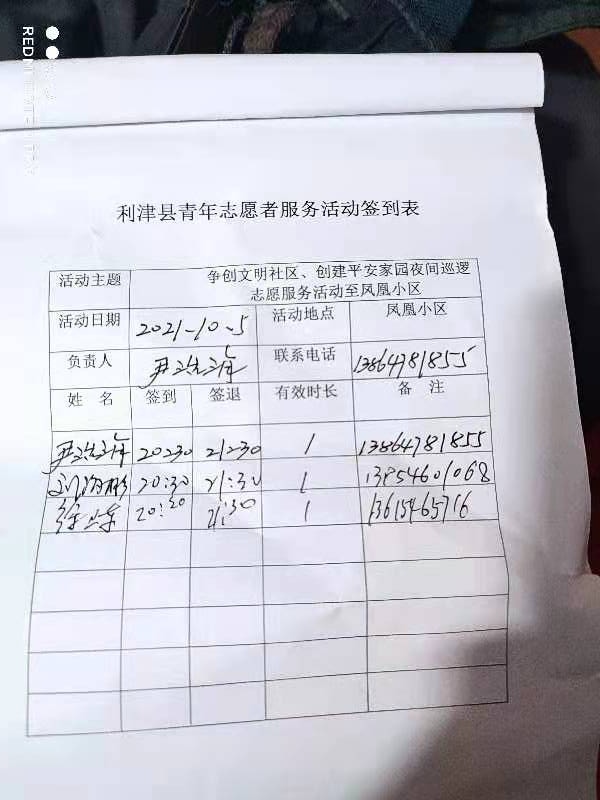 REDMI
利津县青年志愿者服务活动签到表
活动主题 争创文明社区、创建平安家园夜间巡逻
志愿服务活动至凤凰小区
活动日期 2021-10-5 活动地点 凤凰小区
负责人 联系电话 13864781855
姓 名 签到 签退 有效时长 备 注
2030 2130 1 13864781855
20:30 21:30 1 13854601068
徐 20:30 21:30 1 13615465716